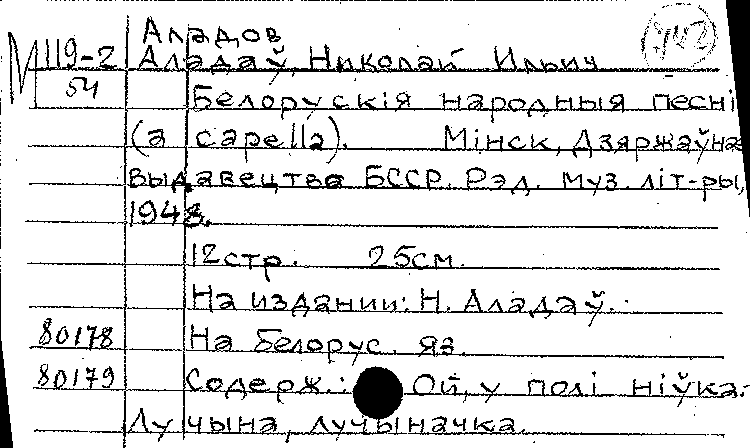 Аладов
М 119-2 Аладаў, Николай Ильич 742
54
Белорускія народныя песні
(a capella). Мінск, Дзяржаўнае
выдавецтва БССР. Рэд. муз. літ-ры,
1948.
12стр. 25см.
На издании: Н. Аладаў.
80178 На белорус. яз.
80179 Содерж.: Ой, у полі ніўка.
Лучына, лучыначка.